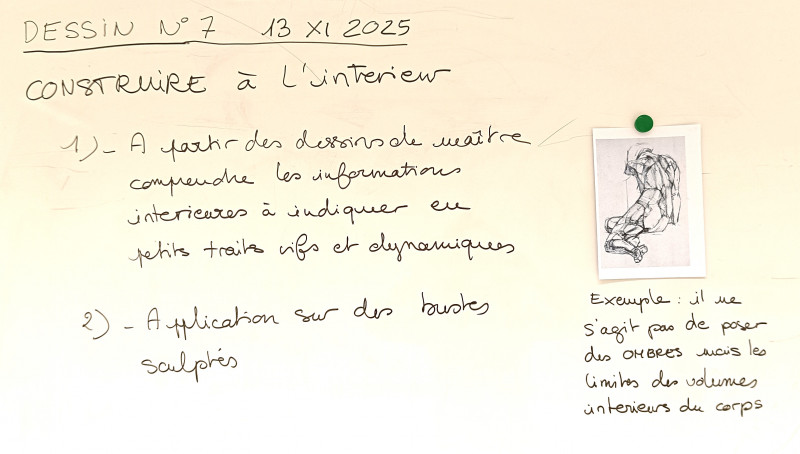 DESSIN N° 7 13 XI 2025
CONSTRUIRE à L'interieur
1) - A partir des dessins de maître
comprendre les informations
interieures à indiquer en
petits traits vifs et dynamiques
2) - Application sur des bustes
sculptés
Exemple : il ne
s'agit pas de poser
des OMBRES mais les
limites des volumes
interieurs du corps